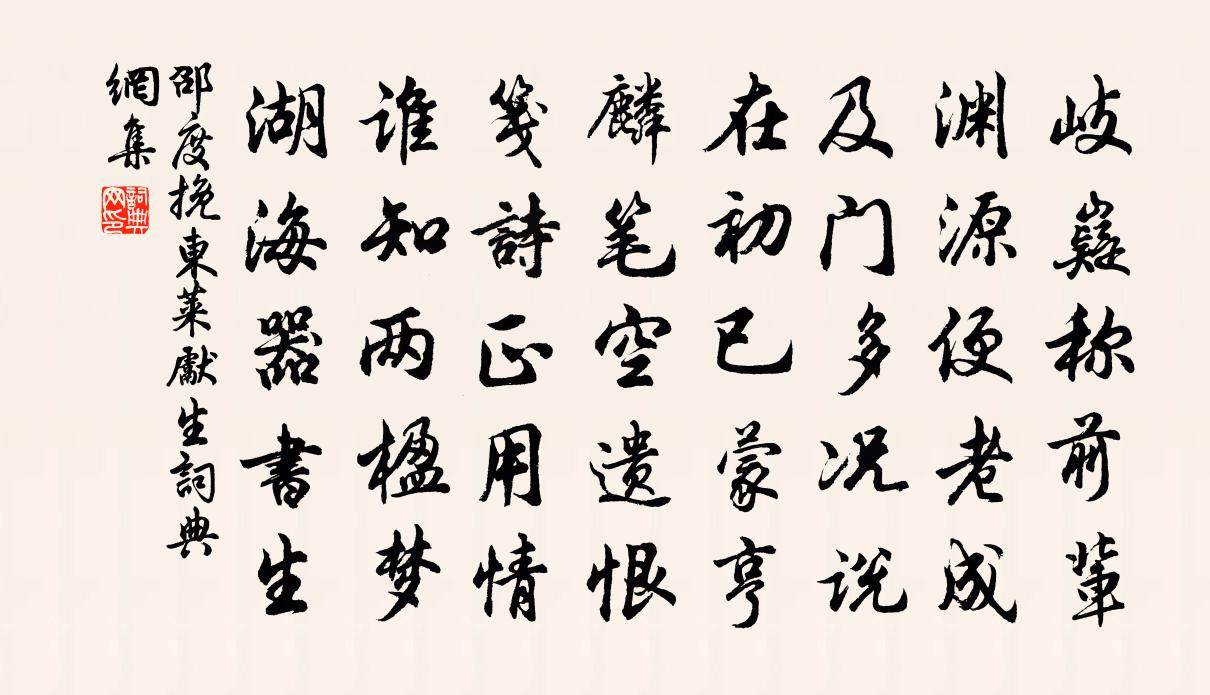 岐嶷称前辈
渊源便老成
及门多况说
在初已蒙亨
麟笔空遗恨
笺詩正用情
谁知两楹梦
湖海器書生
邵度挽東莱獻生詞典
網集
詞典
网